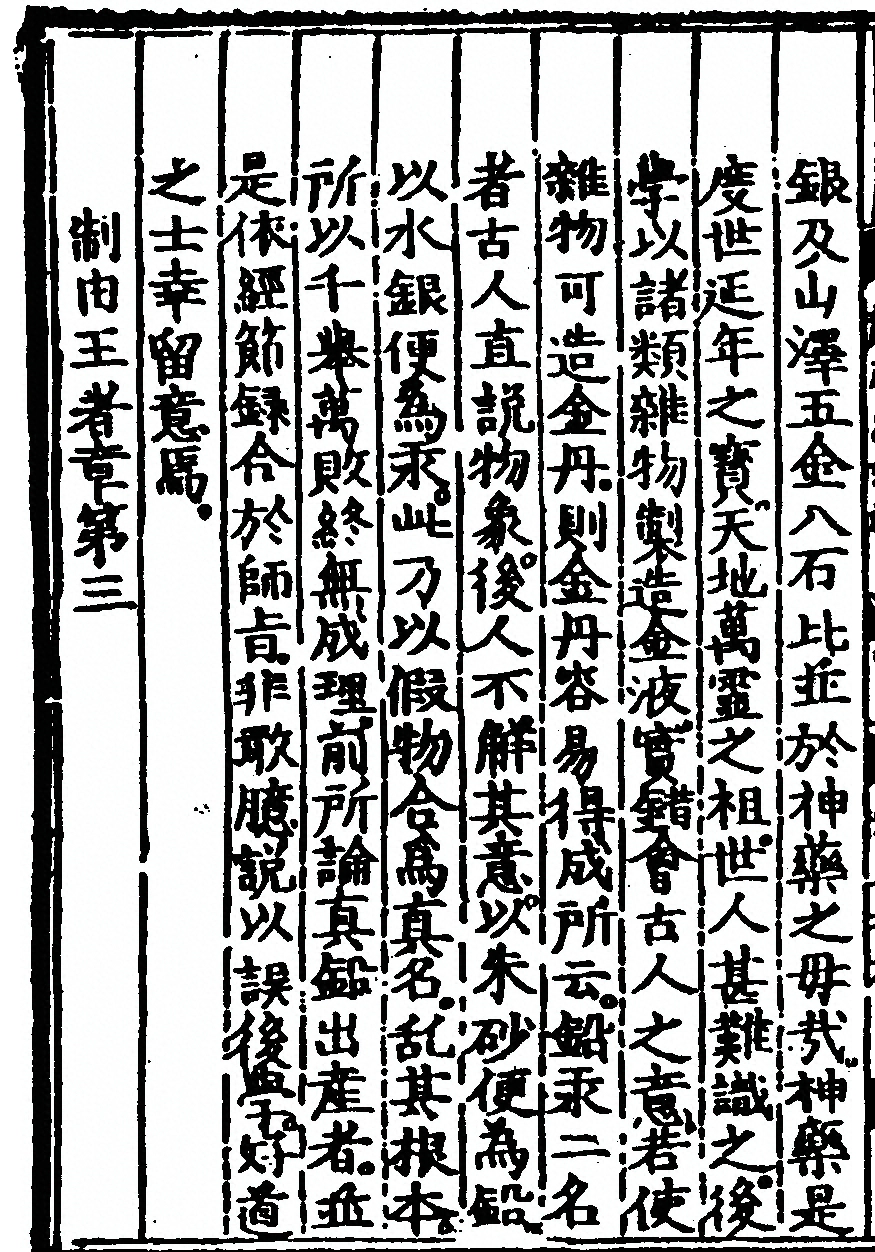 銀及山澤五金八石比並於神藥之母㢤神藥是
度世延年之寶天地萬靈之祖世人甚難識之後
學以諸類雜物製造金液實錯會古人之意若使
雜物可造金丹則金丹容易得成所云鉛汞二名
者古人直説物象後人不解其意以朱砂便為鉛
以水銀便為汞此乃以假物合為真名乱其根本
所以千舉萬敗終無成理前所論真鉛出産者並
是依經節録合於師旨非敢臆説以誤後學好道
之士幸留意焉
制由王者章第三